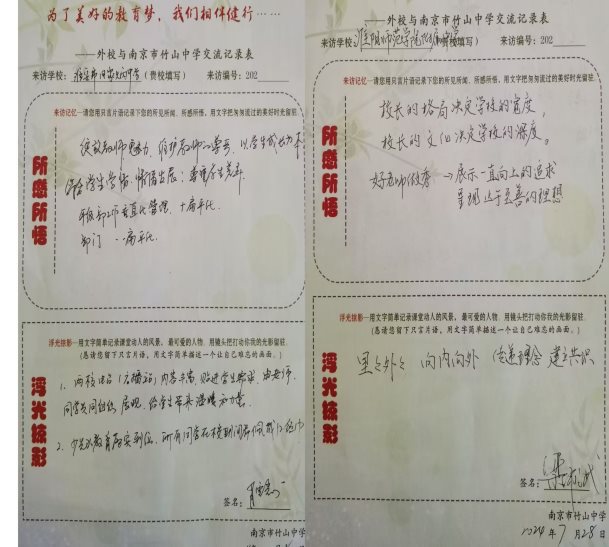 为了美好的教育梦，我们相伴健行……
——外校与南京市竹山中学交流记录表
来访学校: （贵校填写） 来访编号: 202
来访记忆—请您用只言片语记录下您的所见所闻、所感所悟，用文字把匆匆流过的美好时光留驻。
所感所悟
绽放教师魅力，维护教师的尊严，以学生成功为本
学生学情，情愫生长，尊重学生差异
年级部工作垂直化管理，扁平化
部门 扁平化
浮光掠影—用文字简单记录课堂动人的风景、最可爱的人物，用镜头把打动你我的光影留驻。
（恳请您留下只言片语，用文字简单描述一个让自己难忘的画面。）
浮光掠影
1、两校 （广播站）内容丰富，贴近学生需求，由老师、
同学共同 展现，给学生带来温暖和力量。
2、少先队教育落实到位，所有同学在校期间都佩戴红领巾
签名：
南京市竹山中学
——外校与南京市竹山中学交流记录表
来访学校:淮阴师范学院附属中学（贵校填写） 来访编号: 202
来访记忆—请您用只言片语记录下您的所见所闻、所感所悟，用文字把匆匆流过的美好时光留驻。
所感所悟
校长的格局决定学校的宽度
校长的文化决定学校的深度。
好老师优秀 → 展示一直向上的追求
呈现止于至善的理想
浮光掠影—用文字简单记录课堂动人的风景、最可爱的人物，用镜头把打动你我的光影留驻。
（恳请您留下只言片语，用文字简单描述一个让自己难忘的画面。）
浮光掠影
里里外外 向内向外 传递理念 建立共识
签名：
南京市竹山中学
2024年7月28日